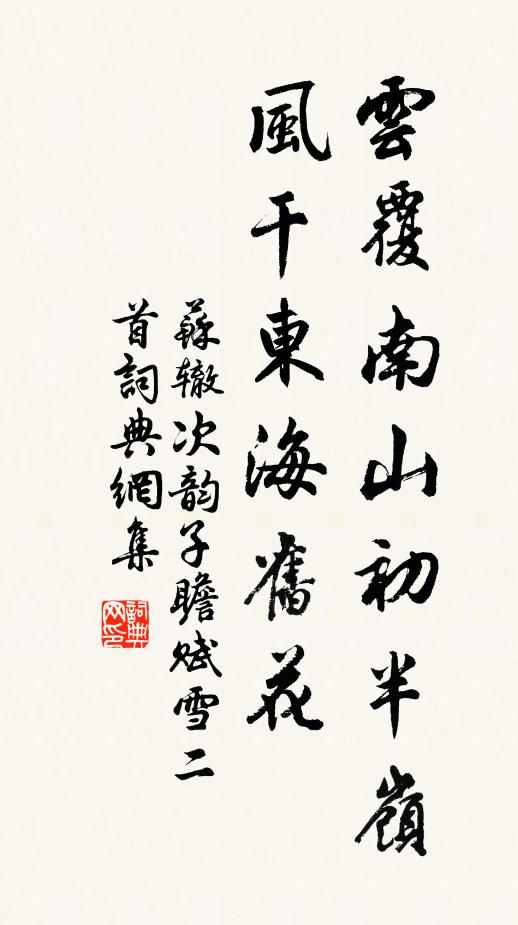 雲覆南山初半嶺
風干東海舊花
蘇辙次韵子瞻賦雪二
首詞典網集
詞典
网印